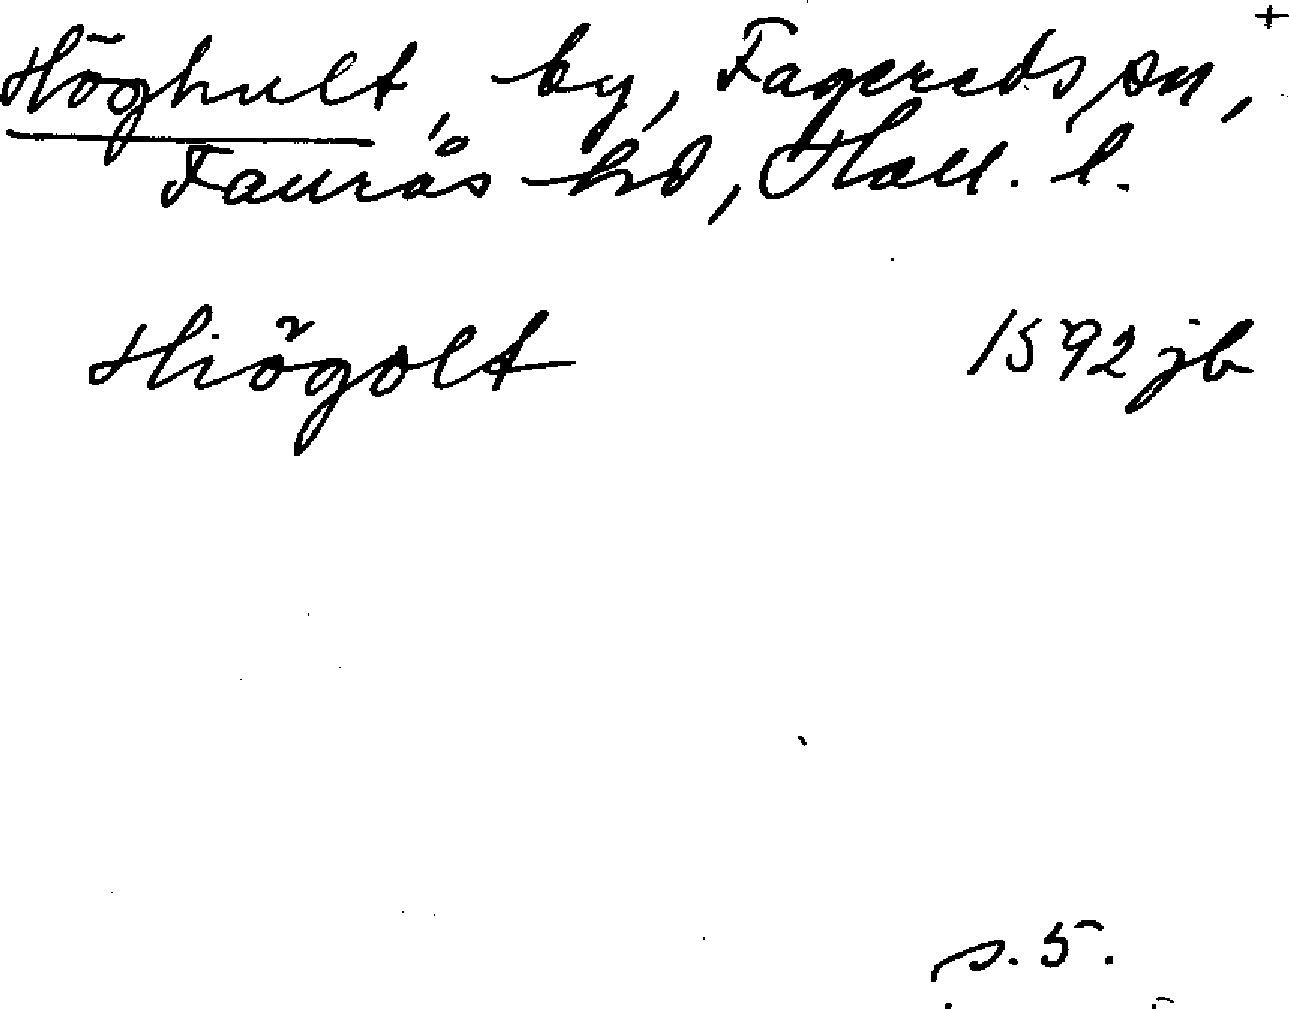 +
Höghult, by, Fagereds sn,
Faurås hd, Hall. l.
Hiögolt 1592 jb
s. 5.